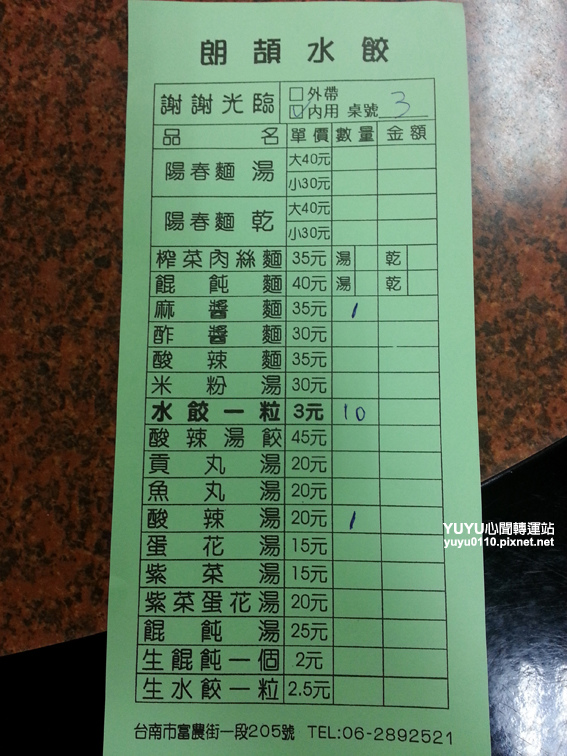 朗頡水餃
謝謝光臨 □外帶
☑內用 桌號 3
品名 單價 數量 金額
陽春麵 湯 大40元
小30元
陽春麵 乾 大40元
小30元
榨菜肉絲麵 35元 湯 乾
餛飩麵 40元 湯 乾
麻醬麵 35元 1
酢醬麵 30元
酸辣麵 35元
米粉湯 30元
水餃一粒 3元 10
酸辣湯餃 45元
貢丸湯 20元
魚丸湯 20元
酸辣湯 20元 1
蛋花湯 15元
紫菜湯 15元
紫菜蛋花湯 20元
餛飩湯 25元
生餛飩一個 2元
生水餃一粒 2.5元
台南市富農街一段205號 TEL:06-2892521
YUYU心聞轉運站
yuyu0110.pixnet.net